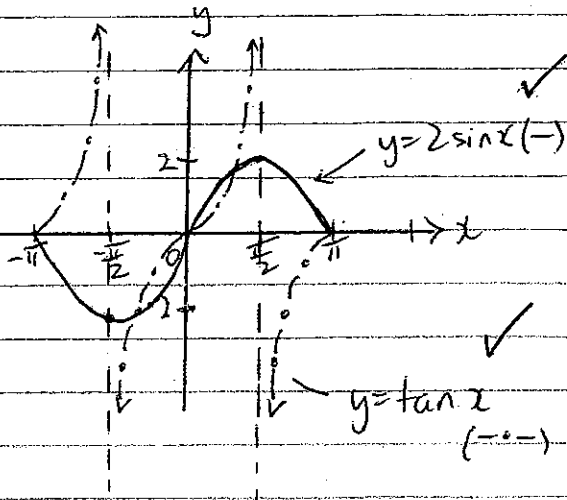 y
2
y=2sinx(—)
x
-π
-π/2
0
π/2
π
-2
y=tan x
(-·-)